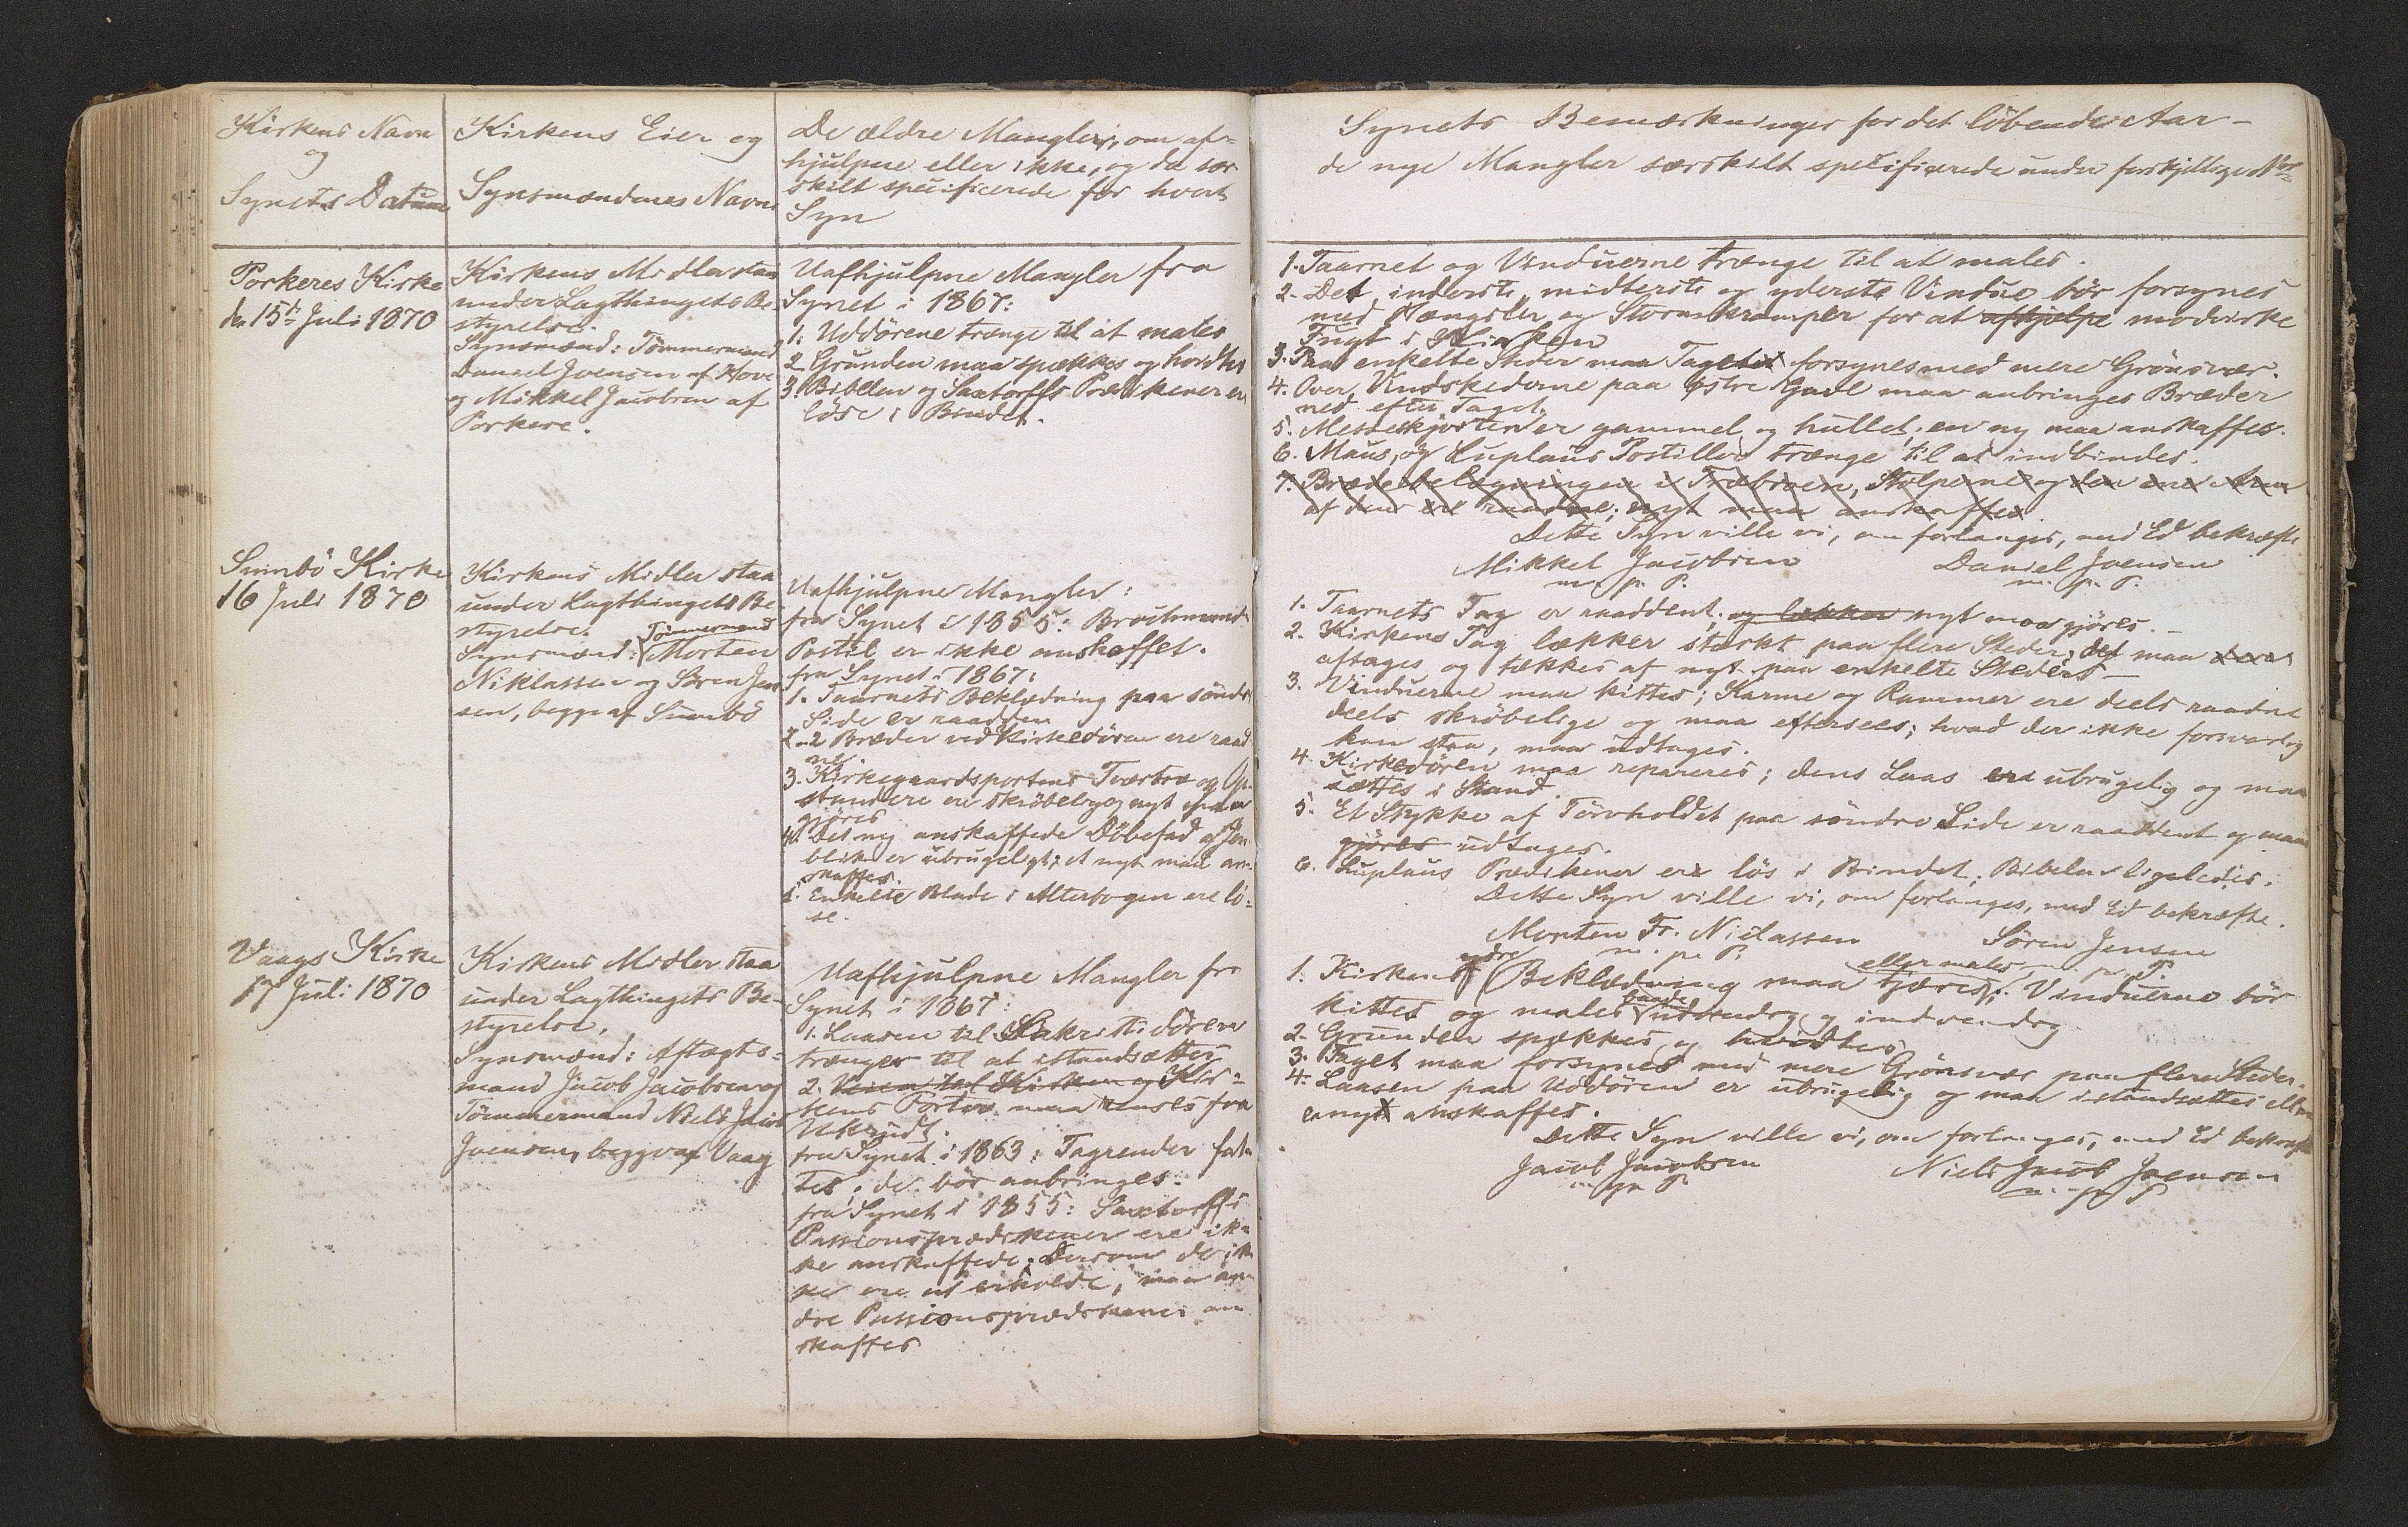 Kirkens Navn
og
Synets Datum
Kirkens Eier og
Synsmændenes Navne
De ældre Mangler, om af-
hjulpne eller ikke, og da sær
skilt specificerede for hvert
Syn
Synets Bemærkninger for det löbende Aar -
de nye Mangler særskilt specificerede under forskjellige Nor
Porkeres Kirke
den 15de Juli 1870
Kirkens Midler staa
under Lagthingets Be-
styrelse.
Synsmænd: Tömmermand
Daniel Joensen af Hove
og Mikkel Jacobsen af
Porkere.
Uafhjulpne Mangler fra
Synet i 1867:
1. Uddörene trænge til at males
2. Grunden maa spækkes og hvidtes
3. Bibelen og Saxtorffs Prædikener ere
löse i Bindet.
1. Taarnet og Vinduerne trænge til at males.
2. Det inderste, midterste og yderste Vindue bör forsynes
med Hængsler og Stormkramper for at afhjelpe modvirke
Fugt i Kirken
3. Paa enkelte Steder maa Taget forsynes med mere Grönsvær.
4. Over Vindskederne paa östre Gavl maa anbringes Bræder
ned efter Taget.
5. Messeskjorten er gammel og hullet, en ny maa anskaffes.
6. Maus, og Luplaus Postiller trænge til at indbindes.
7. Brædebelægningen i Træbroen, Stolperne og den ene Arm
af dem ere raadne; nyt maa anskaffes
Dette Syn ville vi, om forlanges, med Ed bekræfte
Mikkel Jacobsen Daniel Joensen
m. p. P. m. p. P.
Sumbö Kirke
16 Juli 1870
Kirkens Midler staa
under Lagthingets Be-
styrelse.
Tömmermand
Synsmænd: Morten
Niklassen og Sören Jen
sen, begge af Sumbö
Uafhjulpne Mangler:
fra Synet i 1855: Brochmands
Postil er ikke anskaffet.
fra Synet i 1867:
1. Taarnets Beklædning paa söndre
Side er raadden
2. 2 Bræder ved Kirkedören ere raad
ne.
3. Kirkegaardsportens Tværtræ og Op-
standere ere skröbelige, nyt maa
gjöres
4. Det ny anskaffede Döbefad af Jern
blik er ubrugeligt; et nyt maa an-
skaffes.
5. Enkelte Blade i Alterbogen ere lö-
se.
1. Taarnets Tag er raaddent, og lækker nyt maa gjöres. -
2. Kirkens Tag lækker stærkt paa flere Steder, det maa
aftages og tækkes af nyt paa enkelte Steder -
3. Vinduerne maa kittes; Karme og Rammer ere deels raadne
deels skröbelige og maa eftersees; hvad der ikke forsvarlig
kan staa, maa udtages.
4. Kirkedören maa repareres; dens Laas er ubrugelig og maa
sættes i Stand.
5. Et Stykke af Törvholdet paa söndre Side er raaddent og maa
gjöres udtages.
6. Luplaus Prædikener er lös i Bindet, Bibelen ligeledes.
Dette Syn ville vi, om forlanges, med Ed bekræfte.
Morten Fr. Niclassen Sören Jensen
m. p. P. m. p. P.
Vaags Kirke
17 Juli 1870
Kirkens Midler staa
under Lagthingets Be-
styrelse.
Synsmænd: Aftægts-
mand Jacob Jacobsen og
Tömmermand Niels Jacob
Joensen, begge af Vaag
Uafhjulpne Mangler fra
Synet i 1867:
1. Laasen til Sakristidören
trænger til at istandsættes
2. Veien til Kirken og Kir-
kens Fortov maa renses fra
Ukrudt.
fra Synet i 1863: Tagrender fat-
tes; de bör anbringes.
fra Synet i 1855: Saxtorffs
Passionsprædikener ere ik-
ke anskaffede. Dersom de ik
ke ere at erholde, maa an-
dre Passionsprædikener an
skaffes
ydre eller males
1. Kirkens Beklædning maa tjæres. Vinduerne bör
baade
kittes og males udvendig og indvendig
2. Grunden spækkes og hvidtes
3. Taget maa forsynes med mere Grönsvær paa flere Steder.
4. Laasen paa Uddören er ubrugelig og maa istandsættes eller
en ny anskaffes.
Dette Syn ville vi, om forlanges, med Ed bekræfte
Jacob Jacobsen Niels Jacob Joensen
m. p. P. m. p. P